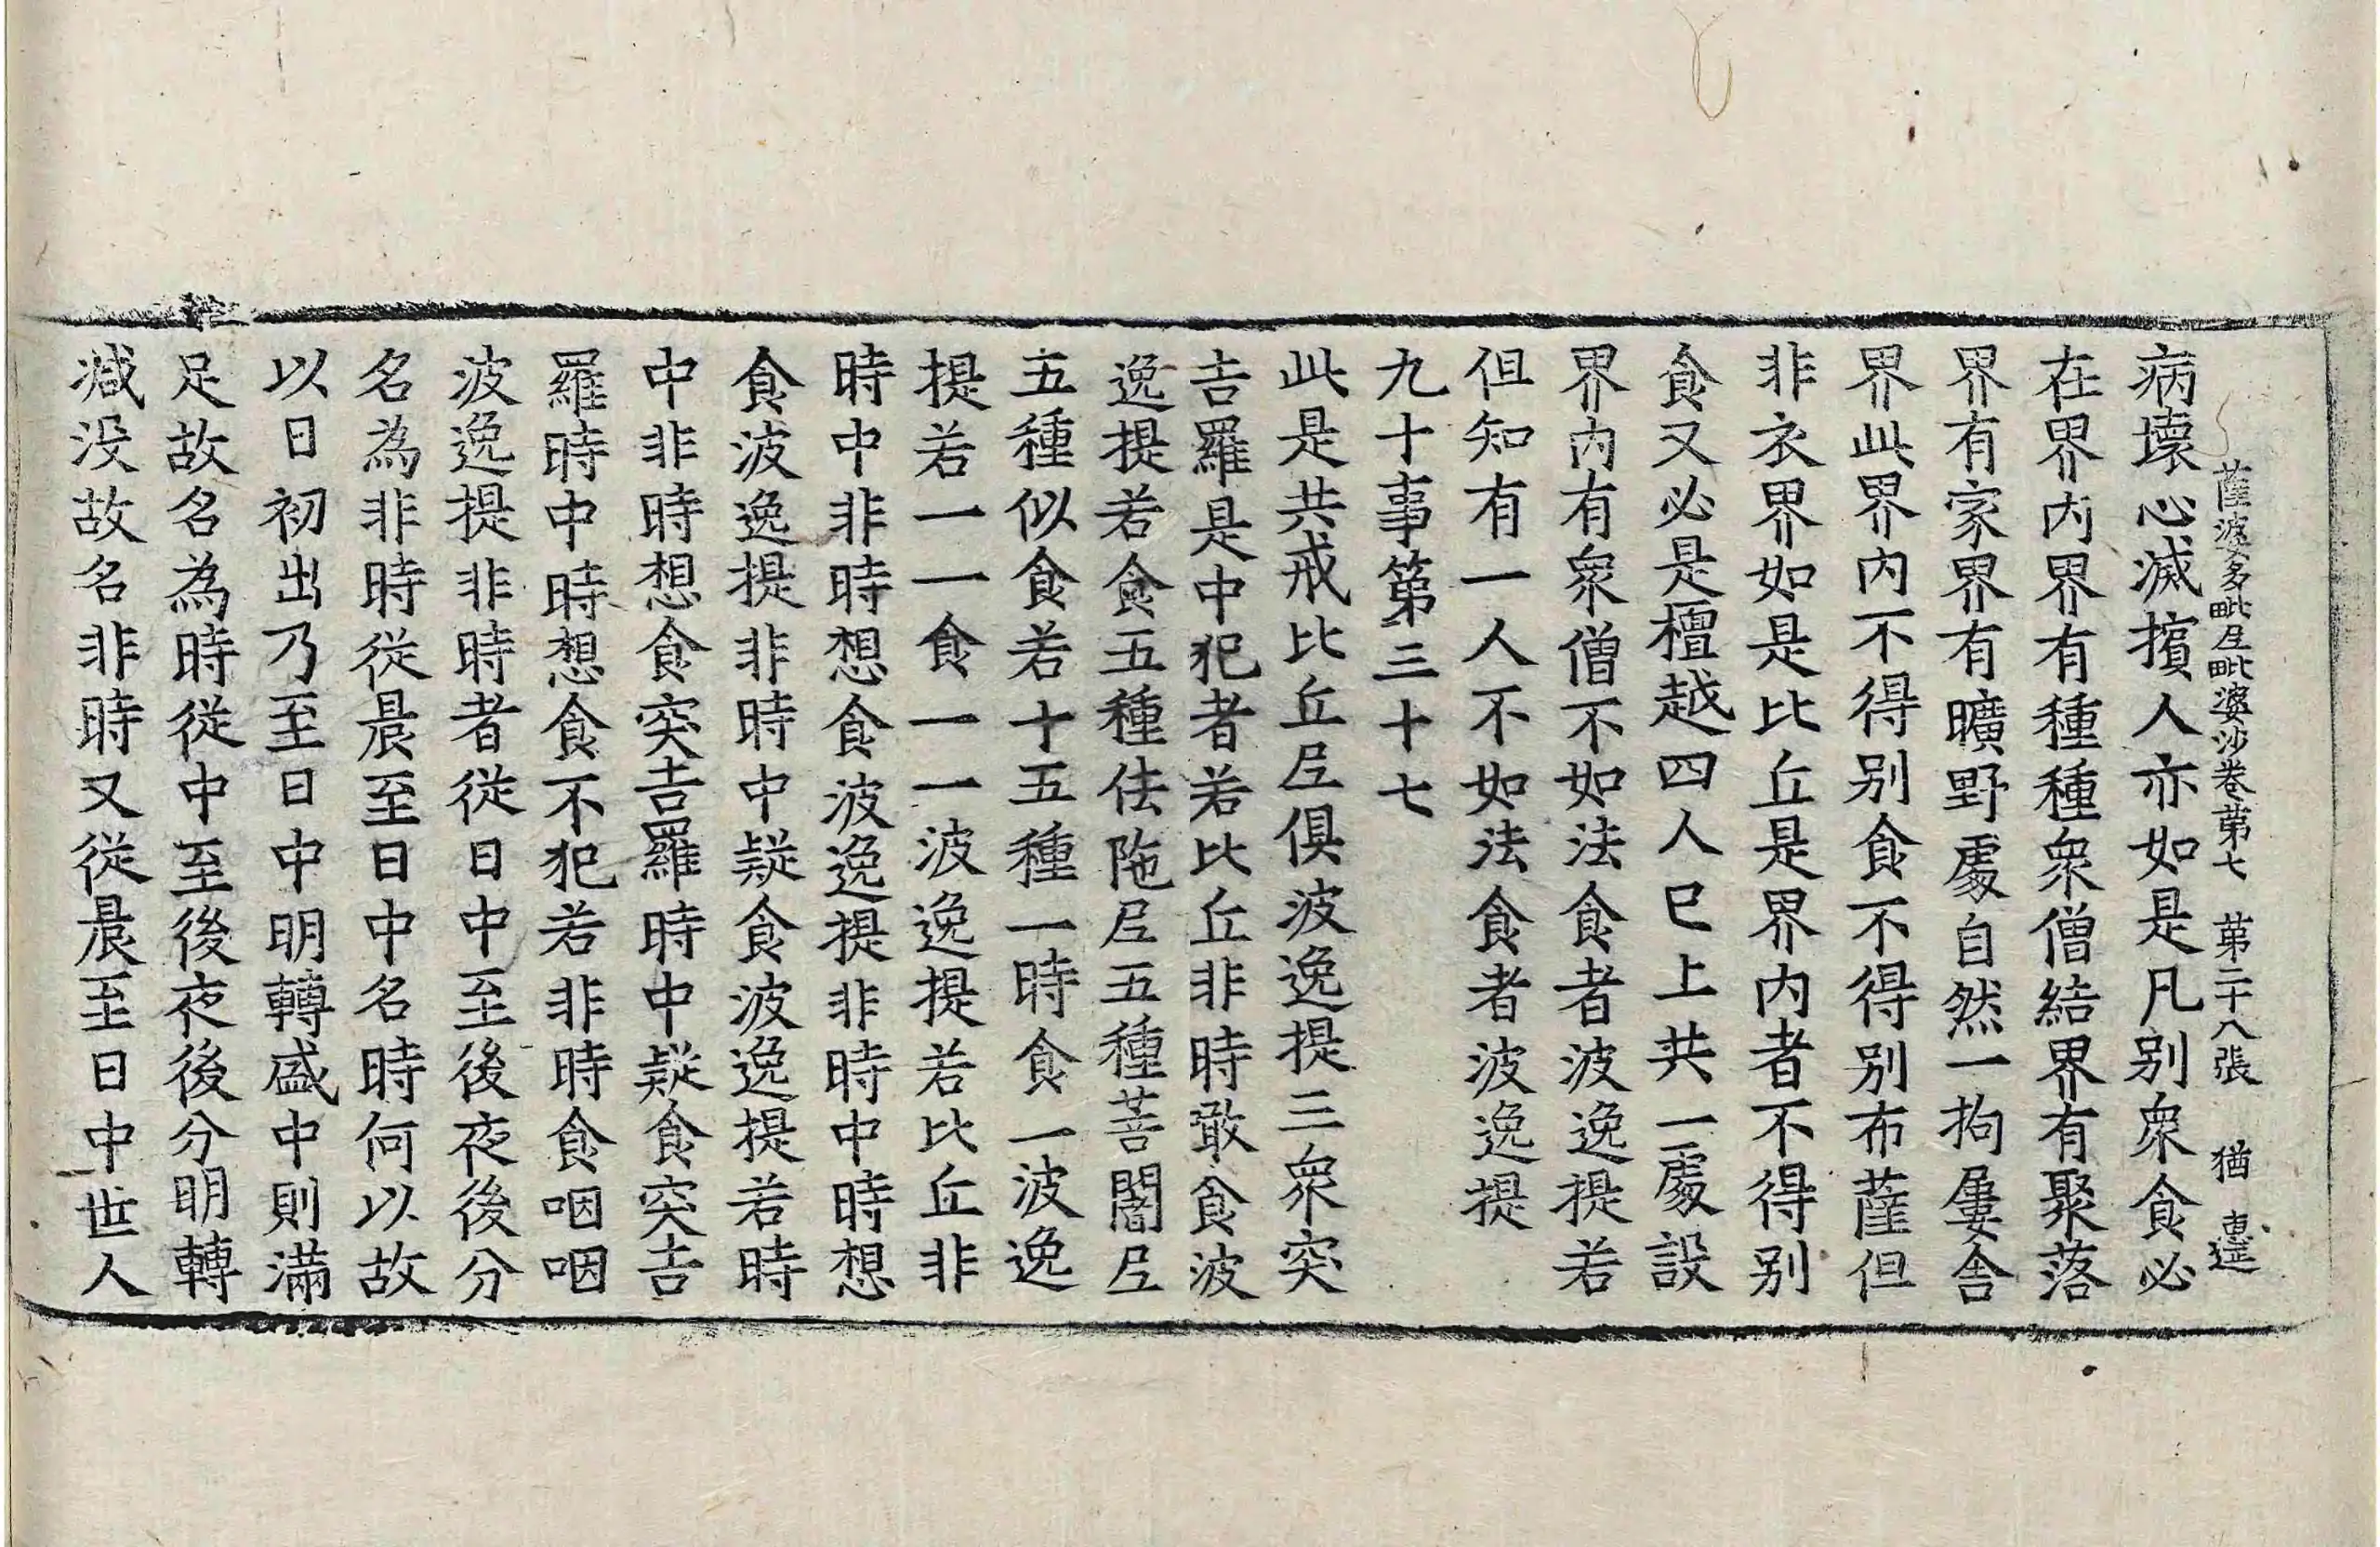 薩婆多毗尼毗婆沙卷第七 第二十八張 猶 惠莚
病壞心滅擯人亦如是凡別衆食必
在界內界有種種衆僧結界有聚落
界有家界有曠野處自然一拘屢舍
界此界內不得別食不得別布薩但
非衣界如是比丘是界內者不得別
食又必是檀越四人已上共一處設
界內有衆僧不如法食者波逸提若
但知有一人不如法食者波逸提
九十事第三十七
此是共戒比丘尼俱波逸提三衆突
吉羅是中犯者若比丘非時噉食波
逸提若食五種佉陁尼五種菩闍尼
五種似食若十五種一時食一波逸
提若一一食一一波逸提若比丘非
時中非時想食波逸提非時中時想
食波逸提非時中疑食波逸提若時
中非時想食突吉羅時中疑食突吉
羅時中時想食不犯若非時食咽咽
波逸提非時者從日中至後夜後分
名為非時從晨至日中名時何以故
以日初出乃至日中明轉盛中則滿
足故名為時從中至後夜後分明轉
減没故名非時又從晨至日中世人